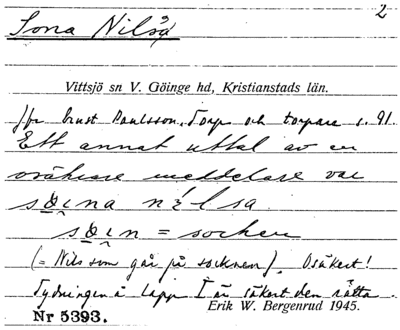 2
Sona Nilsa
Vittsjö sn V. Göinge hd, Kristianstads län.
Jfr Ernst Paulsson. Torp och torpare s. 91.
Ett annat uttal av en
osäkrare meddelare var
sɷ̣ına nɩ́lsa
sɷ̣ın = socken
(= Nils som går på socknen). Osäkert!
Tydningen å lapp I är säkert den rätta.
Erik W. Bergenrud 1945.
Nr 5393.